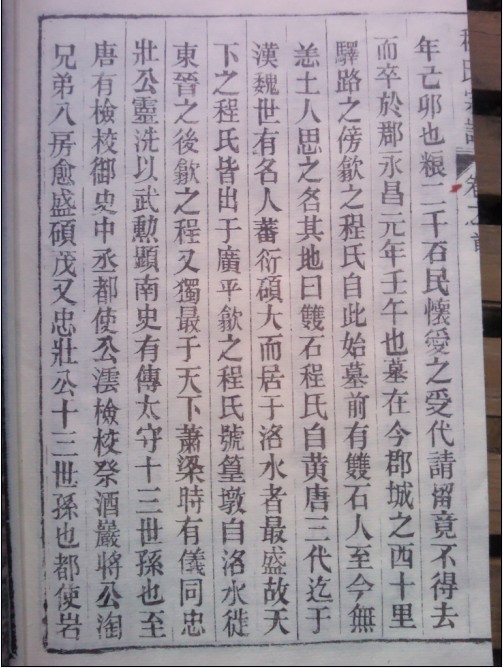 程氏宗譜 卷之首
年己卯也粮二千石民懷愛之受代請畱竟不得去
而卒於郡永昌元年壬午也墓在今郡城之西十里
驛路之傍歙之程氏自此始墓前有雙石人至今無
恙土人思之名其地曰雙石程氏自黄唐三代迄于
漢魏世有名人蕃衍碩大而居于洛水者最盛故天
下之程氏皆出于廣平歙之程氏號篁墩自洛水徙
東晉之後歙之程又獨最于天下蕭梁時有儀同忠
壯公靈洗以武勲顕南史有傳太守十三世孫也至
唐有檢校御史中丞都使公澐檢校祭酒巖將公淘
兄弟八房愈盛碩茂又忠壯公十三世孫也都使岩